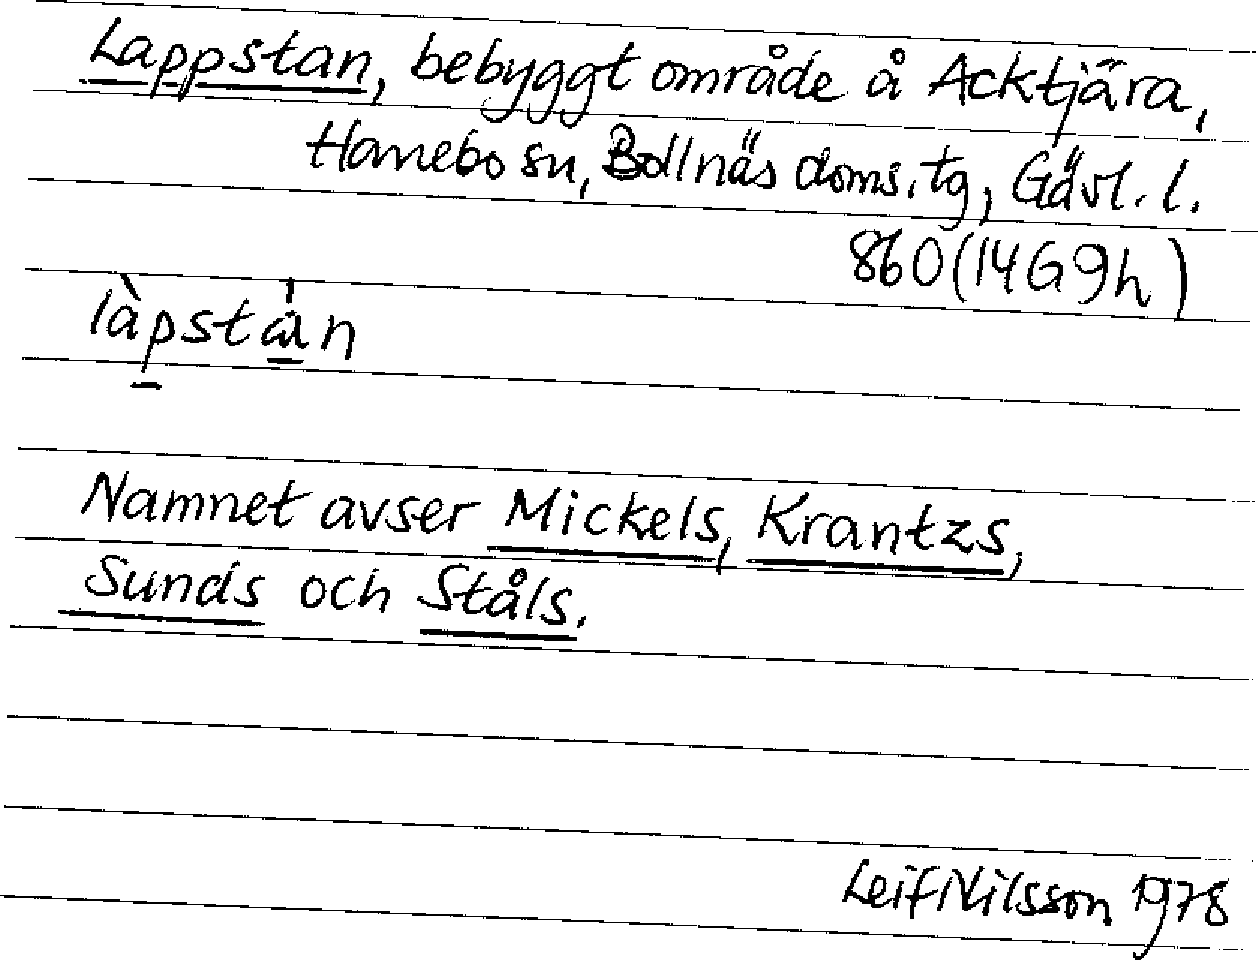 Lappstan, bebyggt område å Acktjära,
Hanebo sn, Bollnäs doms.tg, Gävl. l.
860 (14G9h)
làpstán
Namnet avser Mickels, Krantzs,
Sunds och Ståls.
Leif Nilsson 1978